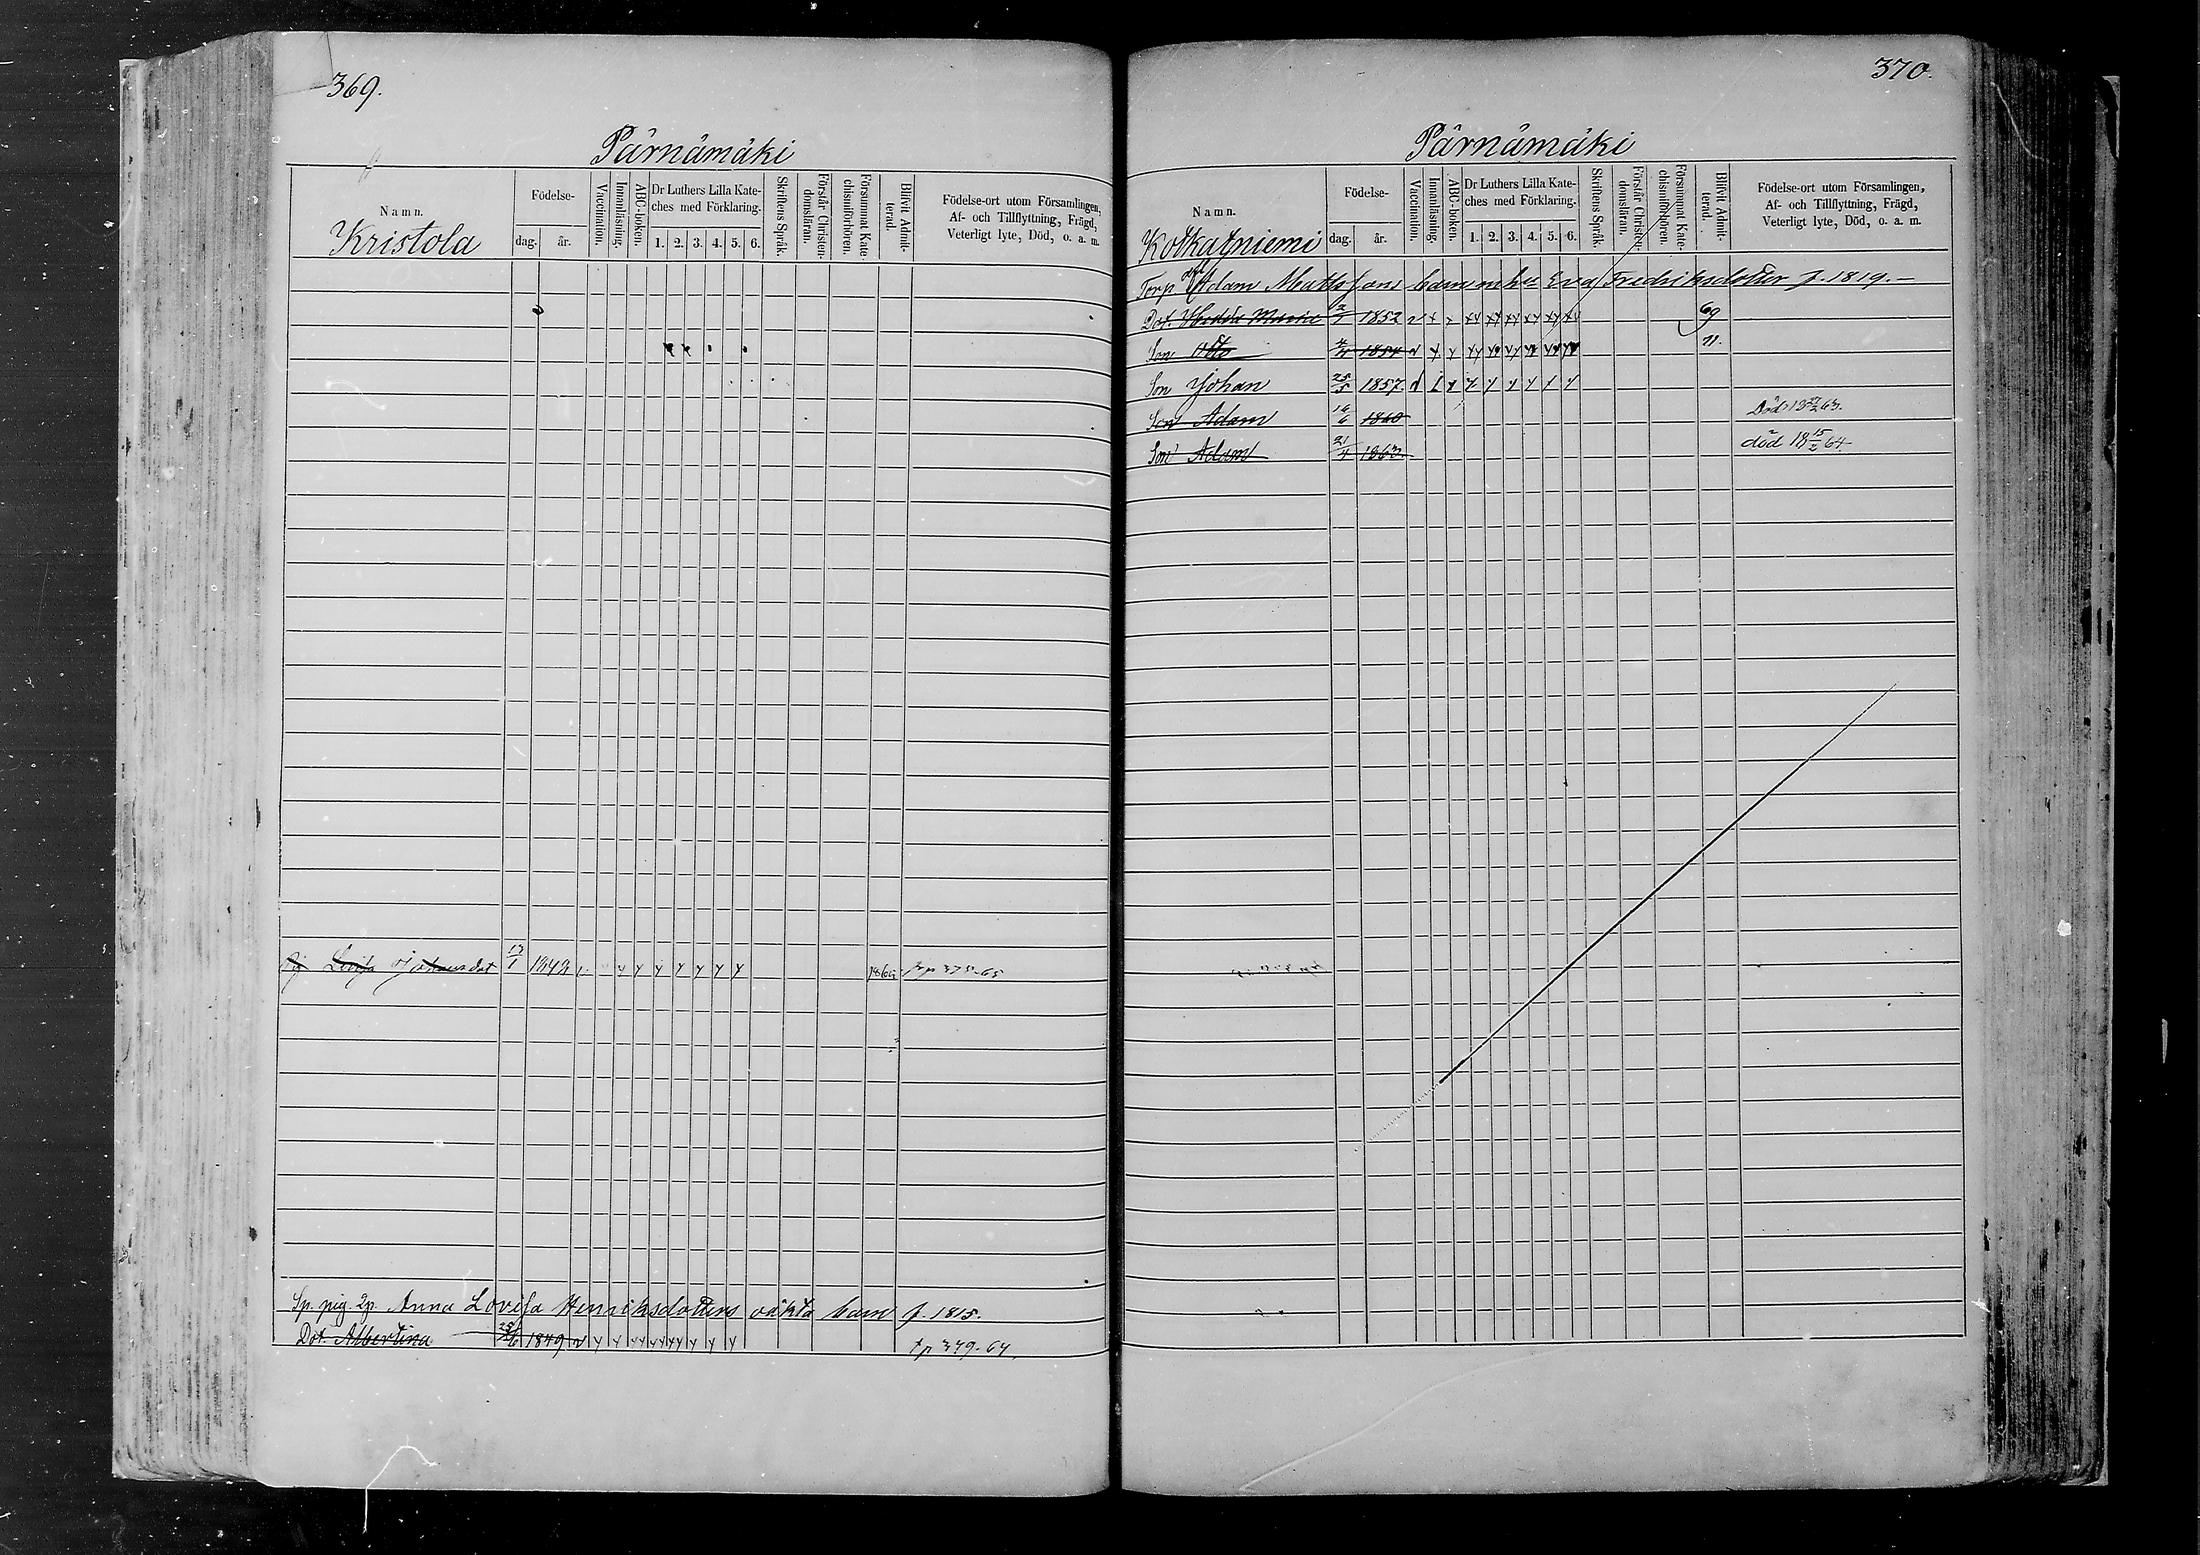 369.
Pärnämäki
Namn.
Kristola
Födelse-
dag. år.
Vaccination.
Innanläsning.
ABC-boken.
Dr Luthers Lilla Kate-
ches med Förklaring.
1. 2. 3. 4. 5. 6.
Skriftens Språk.
Förstår Christen-
domsläran.
Försummat Kate-
chismiförhören.
Blifvit Admit-
terad.
Födelse-ort utom Församlingen,
Af- och Tillflyttning, Frägd,
Veterligt lyte, Död, o. a. m.
Pig Lovisa Johansdot 17/1 1849
Sp. pig. Anna Lovisa Henriksdotters oäkta barn f. 1815.
Dot. Albertina 25/6 1849 tp 349. 64.
370.
Pärnämäki
Namn.
Kotkatniemi
Födelse-
dag. år.
Vaccination.
Innanläsning.
ABC-boken.
Dr Luthers Lilla Kate-
ches med Förklaring.
1. 2. 3. 4. 5. 6.
Skriftens Språk.
Förstår Christen-
domsläran.
Försummat Kate-
chismiförhören.
Blifvit Admit-
terad.
Födelse-ort utom Församlingen,
Af- och Tillflyttning, Frägd,
Veterligt lyte, Död, o. a. m.
Torp Adam Mattssons barn m hu Eva Fredriksdotter f. 1819.
Dot. Hedda 1852 69
Son Otto 1854 71.
Son Johan 25/5 1857
Son Adam 16/6 1860 Död 63.
Son Adam 21/4 1863 död 18 15/2 64